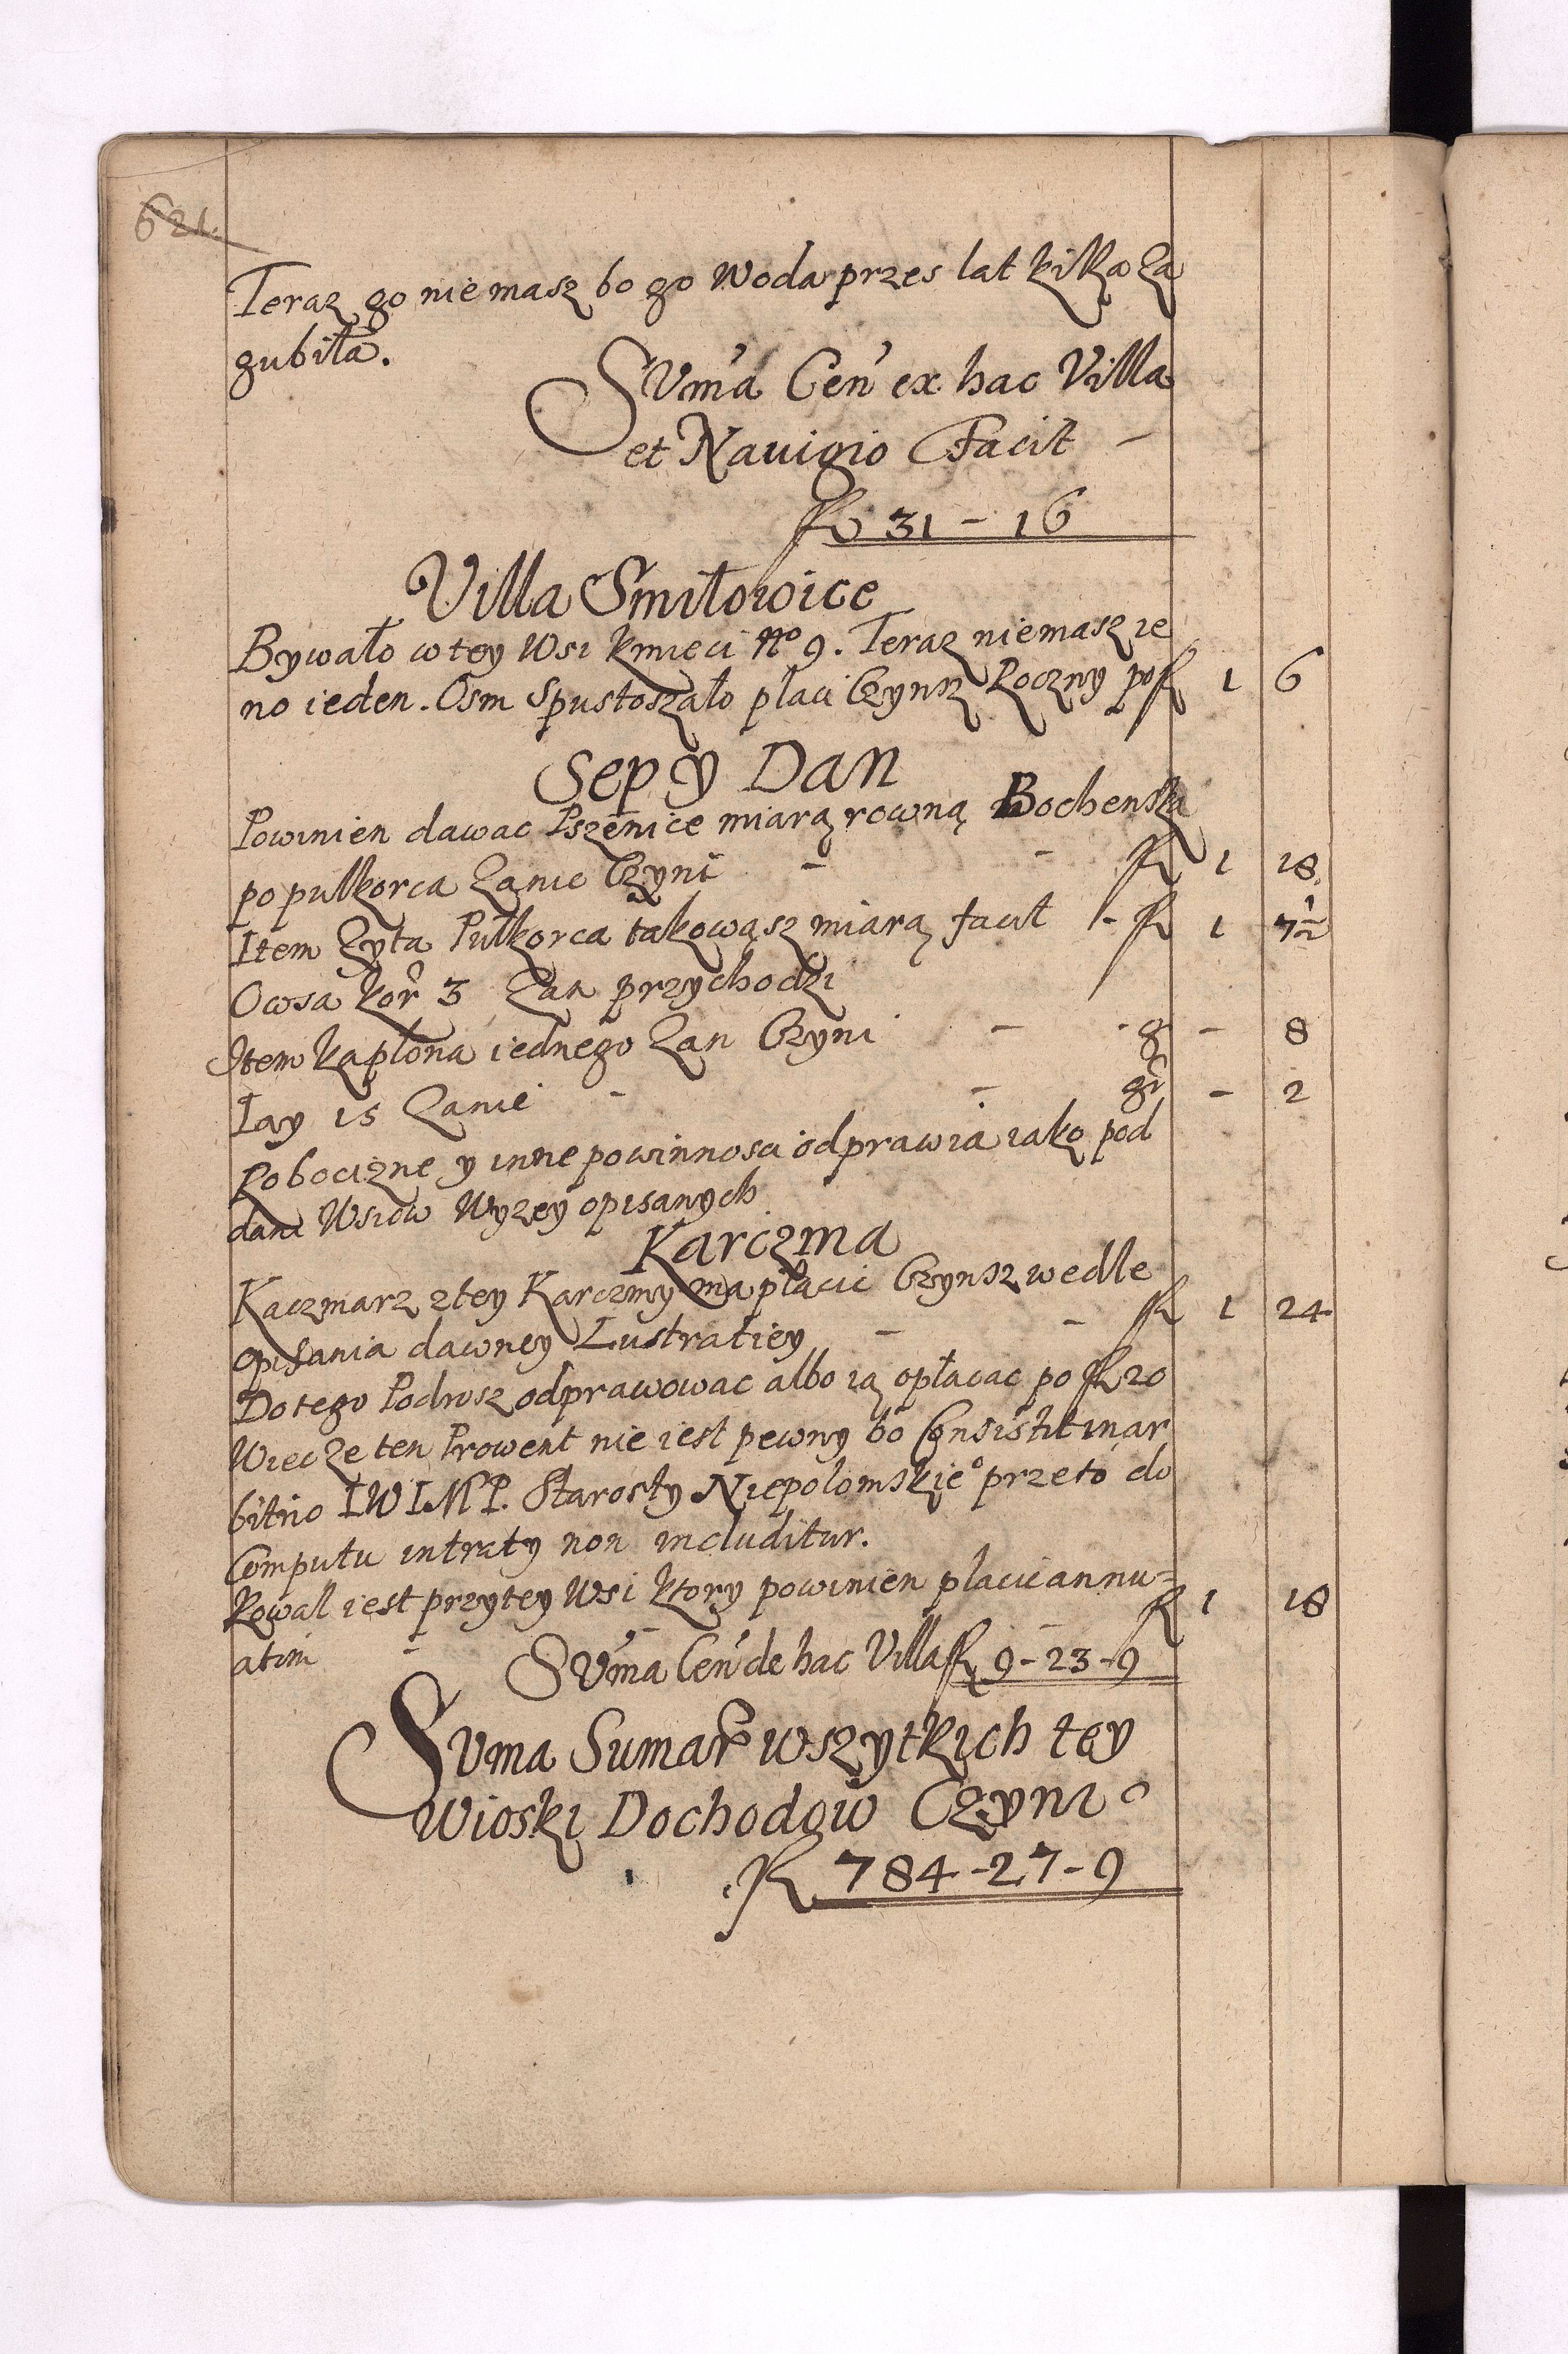 621.
Teraz go nie masz bo go Woda przes lat kilka Za
gubiła.
Sum̃a Cen̄ ex hac Villa
et Nauigio Facit -
fl 31 - 16
Villa Smiłowice
Bywało w tey Wsi kmieci No 9. Teraz nie masz ie
no ieden. Osm Spustoszało płaci Czynsz Roczny po fl 1 6
Sep y Dan
Powinien dawac Pszenice miarą rowną Bochenską
po pułkorca Zanie Czyni - - fl 1 18.
Item Zyta Pułkorca takowąsz miarą facit - fl 1 7½
Owsa kor̃ 3 Zan przychodzi
Item kapłona iednego Zan Czyni - g - 8
Iay 15 Zanie - - gr - 2
Robocizne y inne powinnosci odprawia iako pod
dani Wsiow Wyzey opisanych
Karczma
Kaczmarz z tey Karczmy ma płacic Czynsz wedle
opisania dawney Lustratiey - - fl 1 24
Do tego Podrosz odprawowac albo ią opłacac po fl 20
Wiec ze ten Prowent nie iest pewny bo Consistit in ar
bitrio IW IMP. Starosty Niepolomskieº przeto do
Computu intraty non includitur.
Kowal iest przy tey Wsi ktory powinien płacic annu=
atim - - - fl 1 18
Sum̃a Cen̄ de hac Villa fl 9 - 23 - 9
Suma Sumar̃ wszytkich tey
Wioski Dochodow Czyni
fl 784 - 27 - 9